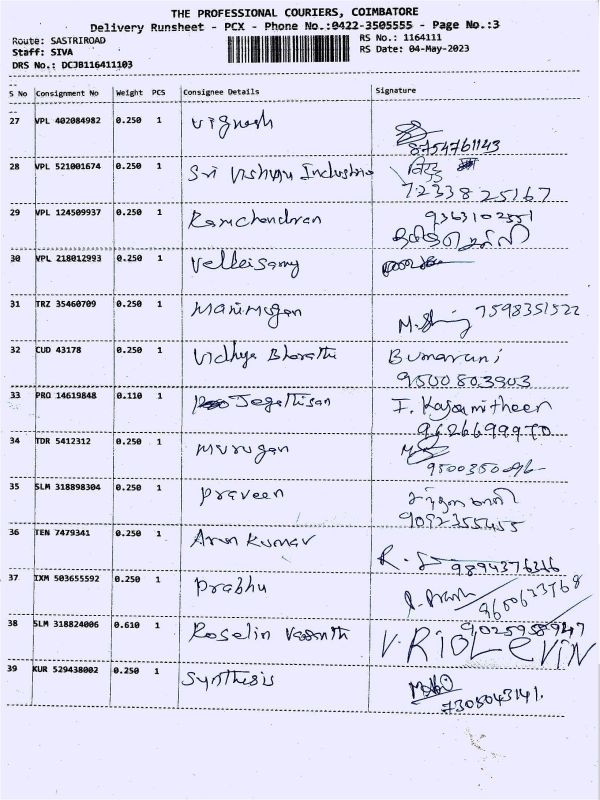 THE PROFESSIONAL COURIERS, COIMBATORE
Delivery Runsheet - PCX - Phone No.:0422-3505555 - Page No.:3
Route: SASTRIROAD
RS No.: 1164111
Staff: SIVA
RS Date: 04-May-2023
DRS No.: DCJB116411103
S No Consignment No Weight PCS Consignee Details Signature
27 VPL 402084982 0.250 1 Vignesh
8754761143
28 VPL 521001674 0.250 1 Sri Vishnu Industries
72338 25167
29 VPL 124509937 0.250 1 Ramchandran 9363102551
30 VPL 218012993 0.250 1 Velleisamy
31 TRZ 35460709 0.250 1 Manimugan 7598351522
32 CUD 43178 0.250 1 Vidhya Bharathi Bumavani
9500803903
33 PRO 14619848 0.110 1 Jegathisan I. Kajamitheen
34 TDR 5412312 0.250 1 Murugan
35 SLM 318898304 0.250 1 Praveen
9092355455
36 TEN 7479341 0.250 1 Arun Kumar
9894376366
37 IXM 503655592 0.250 1 Prabhu
9600633768
38 SLM 318824006 0.610 1 Roselin Vasanth 9025958947
V.RIOLEVIN
39 KUR 529438002 0.250 1 Synthesis
7305043141.